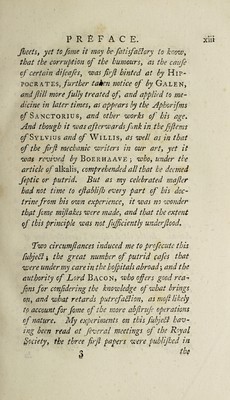 PREFACE. xiii
ſheets, yet to ſome it may be ſatisfactory to know,
that the corruption of the humours, as the cauſe
of certain diſeaſes, was firſt hinted at by HIP-
POCRATES, further taken notice of by GALEN,
and ſtill more fully treated of, and applied to me-
dicine in later times, as appears by the Aphoriſms
of SANCTORIUS, and other works of his age.
And though it was afterwards ſunk in the ſyſtems
of SYLVIUS and of WILLIS, as well as in that
of the firſt mechanic writers in our art, yet it
was revived by BOERHAAVE; who, under the
article of alkalis, comprehended all that he deemed
ſeptic or putrid. But as my celebrated maſter
had not time to eſtabliſh every part of his doc-
trine from his own experience, it was no wonder
that ſome miſtakes were made, and that the extent
of this principle was not ſufficiently underſtood.
Two circumſtances induced me to proſecute this
ſubject; the great number of putrid caſes that
were under my care in the hoſpitals abroad; and the
authority of Lord BACON, who offers good rea-
ſons for conſidering the knowledge of what brings
on, and what retards putrefaction, as moſt likely
to account for ſome of the more abſtruſe operations
of nature. My experiments on this ſubject hav-
ing been read at ſeveral meetings of the Royal
Society, the three firſt papers were publiſhed in
3 the